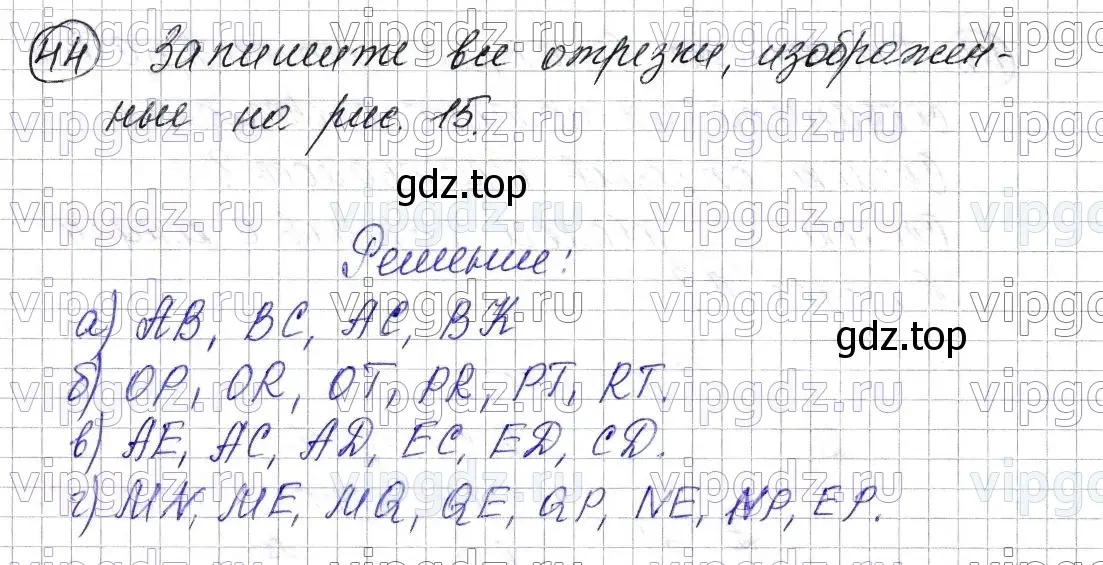 44 Запишите все отрезки, изображен-
ные на рис. 15.
gdz.top
Решение:
а) AB, BC, AC, BK
gdz.top
б) OP, OR, OT, PR, PT, RT.
в) AE, AC, AD, EC, ED, CD.
г) MN, ME, MQ, QE, QP, NE, NP, EP.
vipgdz.ru